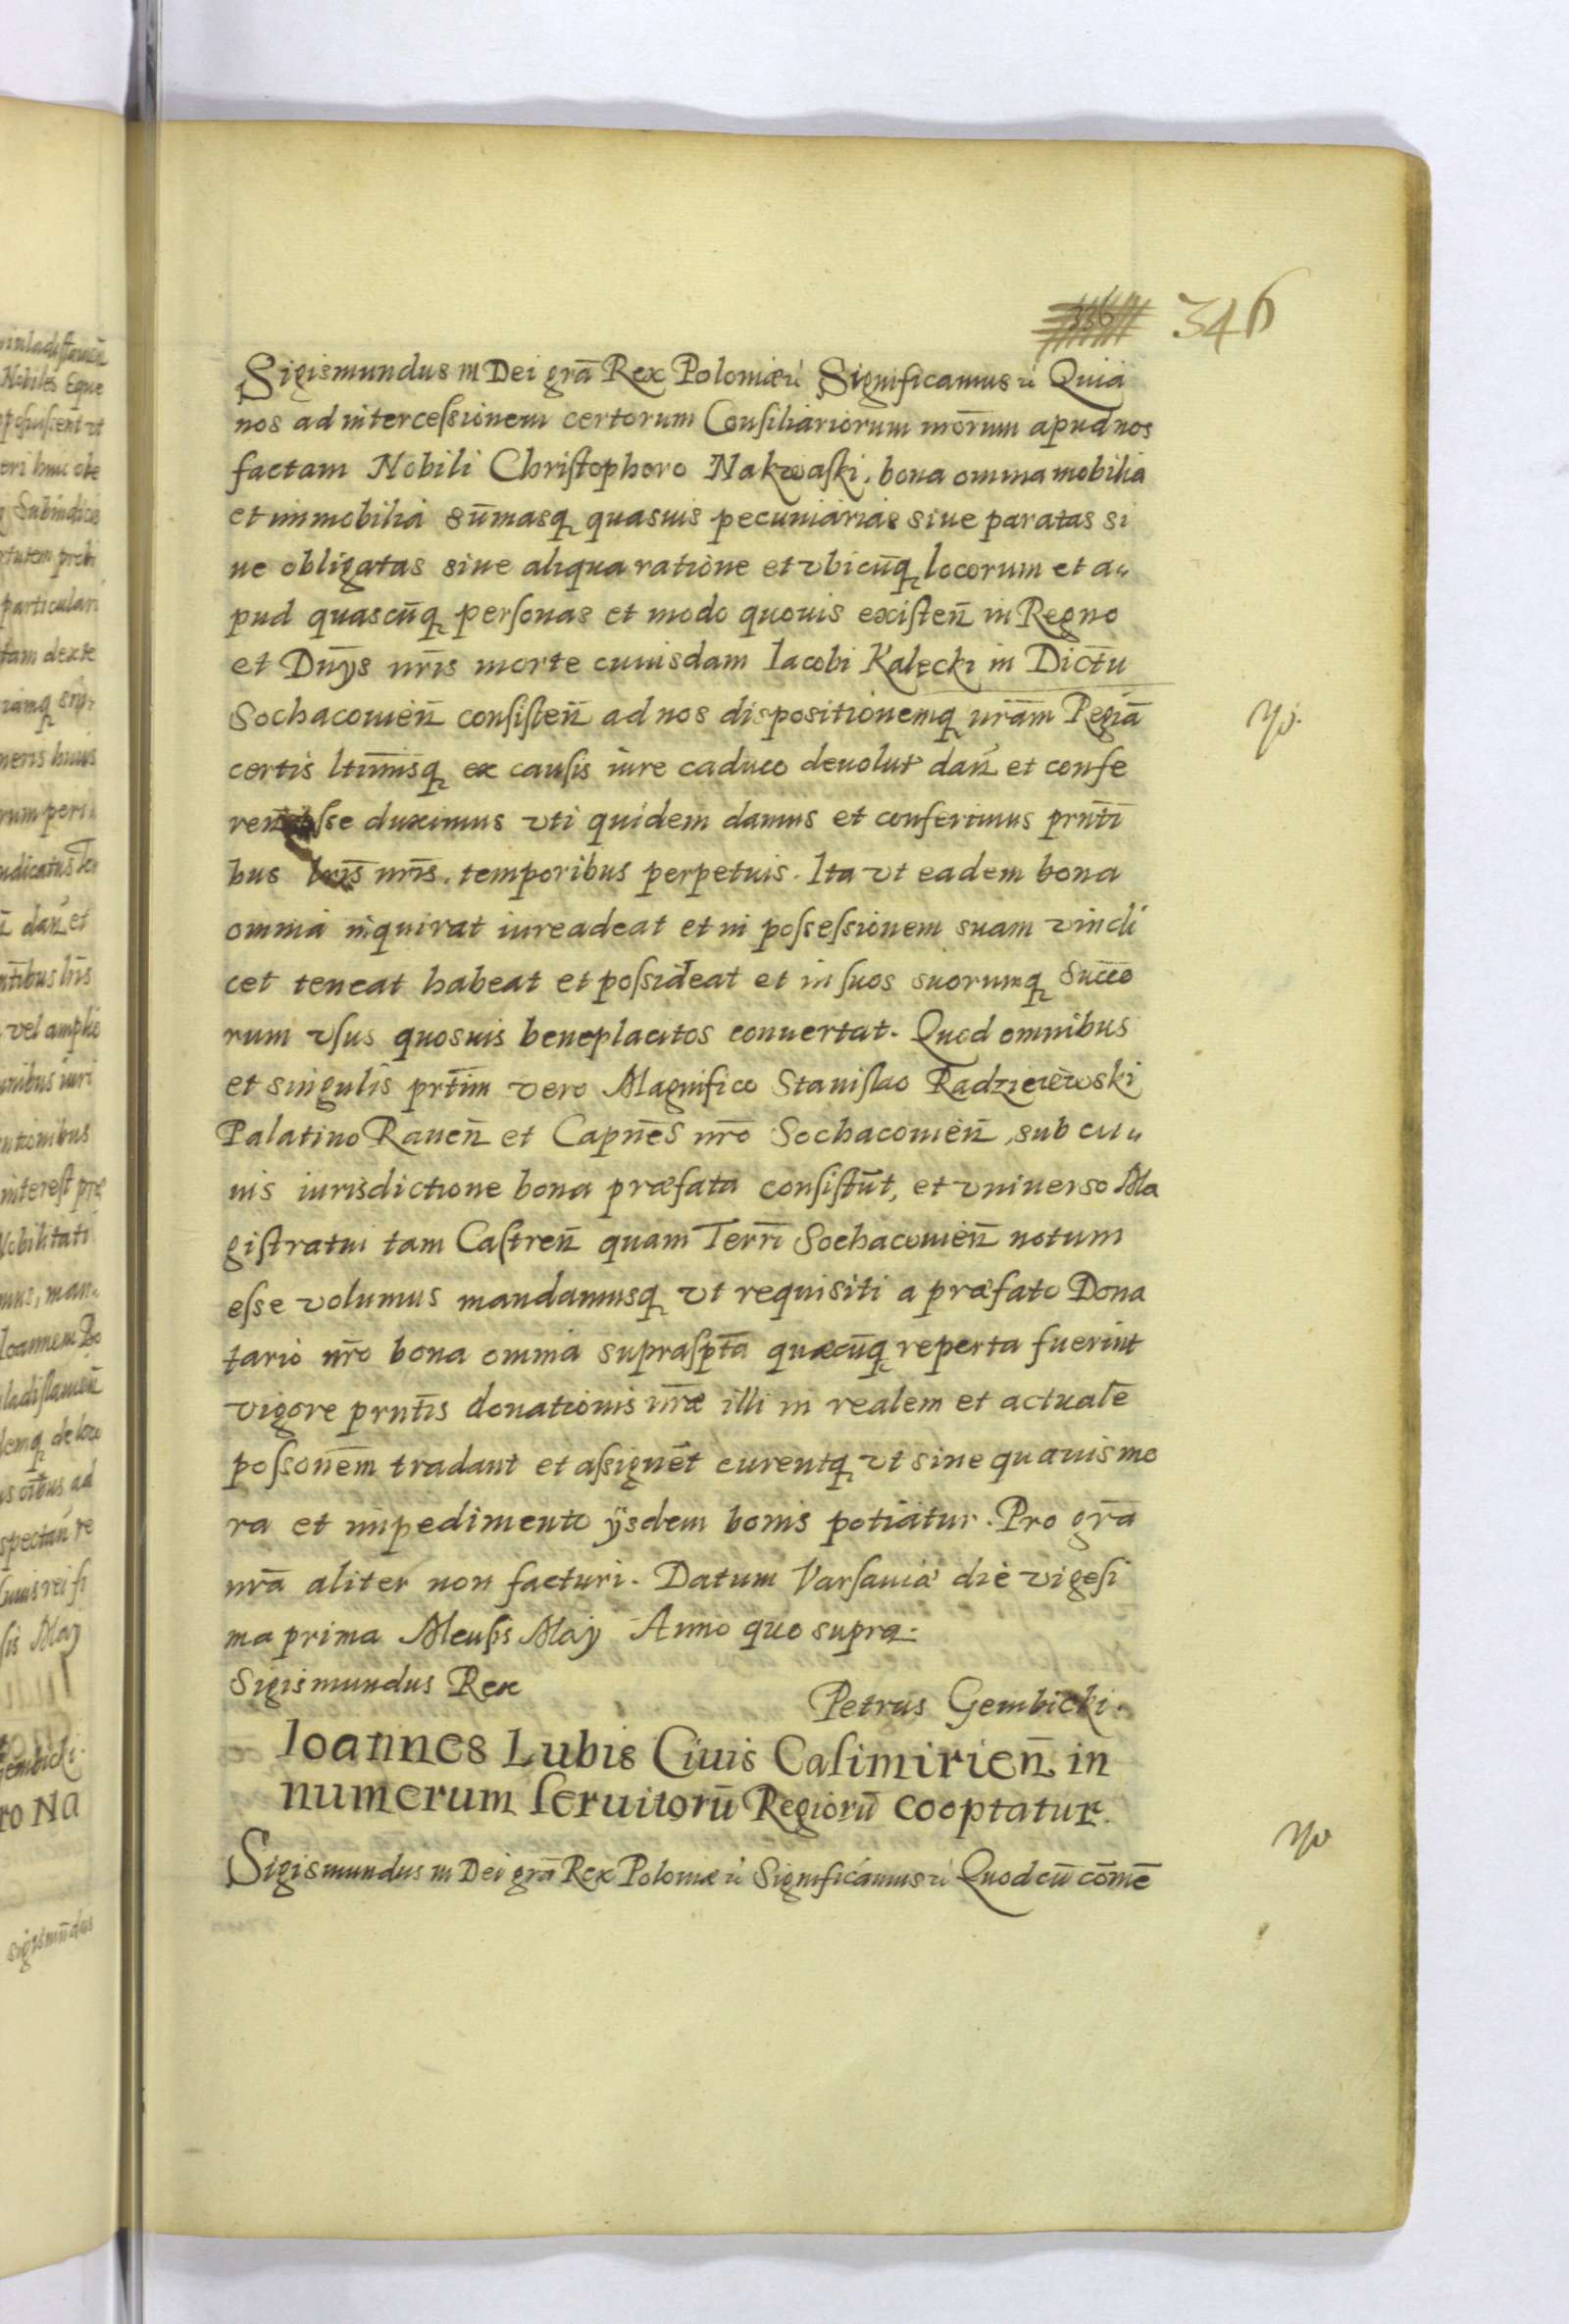 336 346
Sigismundus III Dei grã Rex Poloniæ ɛ̃ Significamus ɛ̃ Quia
nos ad intercessionem certorum Consiliariorum nrõrum apud nos
factam Nobili Christophoro Nakwaski, bona omnia mobilia
et immobilia sũmasq quasuis pecuniarias siue paratas si
ue obligatas siue aliqua ratione et vbicũq locorum et a„
pud quascũq personas et modo quouis existeñ in Regno
et Dñys nr̃is morte cuiusdam Iacobi Kalęcki in Dictũ
Sochacouieñ consisteñ ad nos dispositionemq nrãm Regiã
certis ltimisq ex causis iure caduco deuolut dañ et confe
reñ esse duximus vti quidem damus et conferimus prñti
bus lr̃is nr̃is. temporibus perpetuis. Ita vt eadem bona
omnia inquirat iure adeat et in possessionem suam vindi
cet teneat habeat et possideat et in suos suorumq Succo
rum vsus quosuis beneplacitos conuertat. Quod omnibus
et singulis prtĩm vero Magnifico Stanislao Radzieiewski
Palatino Raueñ et Capnẽs nrõ Sochacouieñ, sub cu„
ius iurisdictione bona præfata consistũt, et vniuerso Ma
gistratui tam Castreñ quam Terrĩ Sochacouieñ notum
esse volumus mandamusq vt requisiti a præfato Dona
tario nrõ bona omnia suprasptã quæcũq reperta fuerint
vigore prñtis donationis nr̃æ illi in realem et actualẽ
possonẽm tradant et assignẽt curentq vt sine quauis mo
ra et impedimento ÿsdem bonis potiatur. Pro grã
nrã aliter non facturi. Datum Varsauiæ die vigesi
ma prima Mensis Maÿ Anno quo supra.
Sigismundus Rex
Petrus Gembicki.
Ioannes Lubis Ciuis Casimirieñ in
numerum seruitorũ Regiorũ cooptatur.
Sigismundus III Dei grã Rex Poloniæ ɛ̃ Significamus ɛ̃ Quod cũ cõmẽ